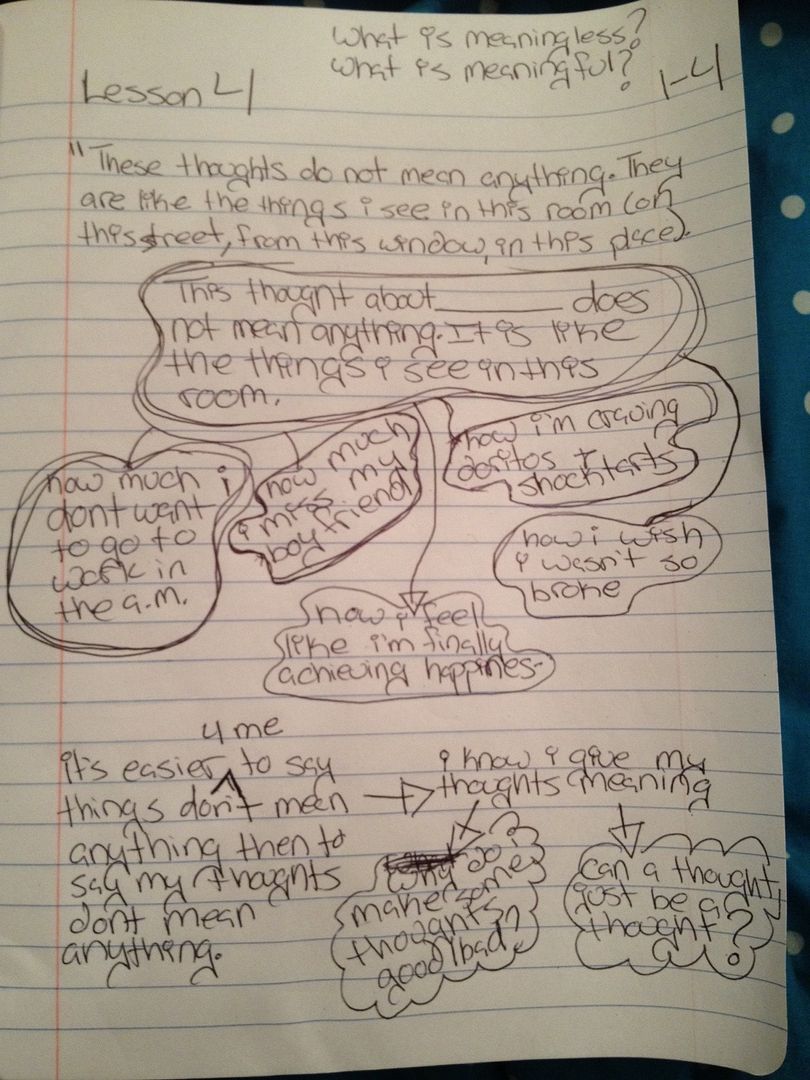 What is meaningless?
What is meaningful?
Lesson 4
1-4
"These thoughts do not mean anything. They
are like the things i see in this room (on
this street, from this window, in this place).
This thought about_______ does
not mean anything. It is like
the things i see in this
room.
how much i
dont want
to go to
work in
the a.m.
how much
i miss my
boyfriend
how i'm craving
doritos +
shocktarts
how i wish
i wasn't so
broke
how i feel
like i'm finally
achieving happines-
4 me
it's easier ^ to say
things don't mean
anything then to
say my thoughts
dont mean
anything.
i know i give my
thoughts meaning
why do i
make some
thoughts
good/bad?
can a thought
just be a
thought?